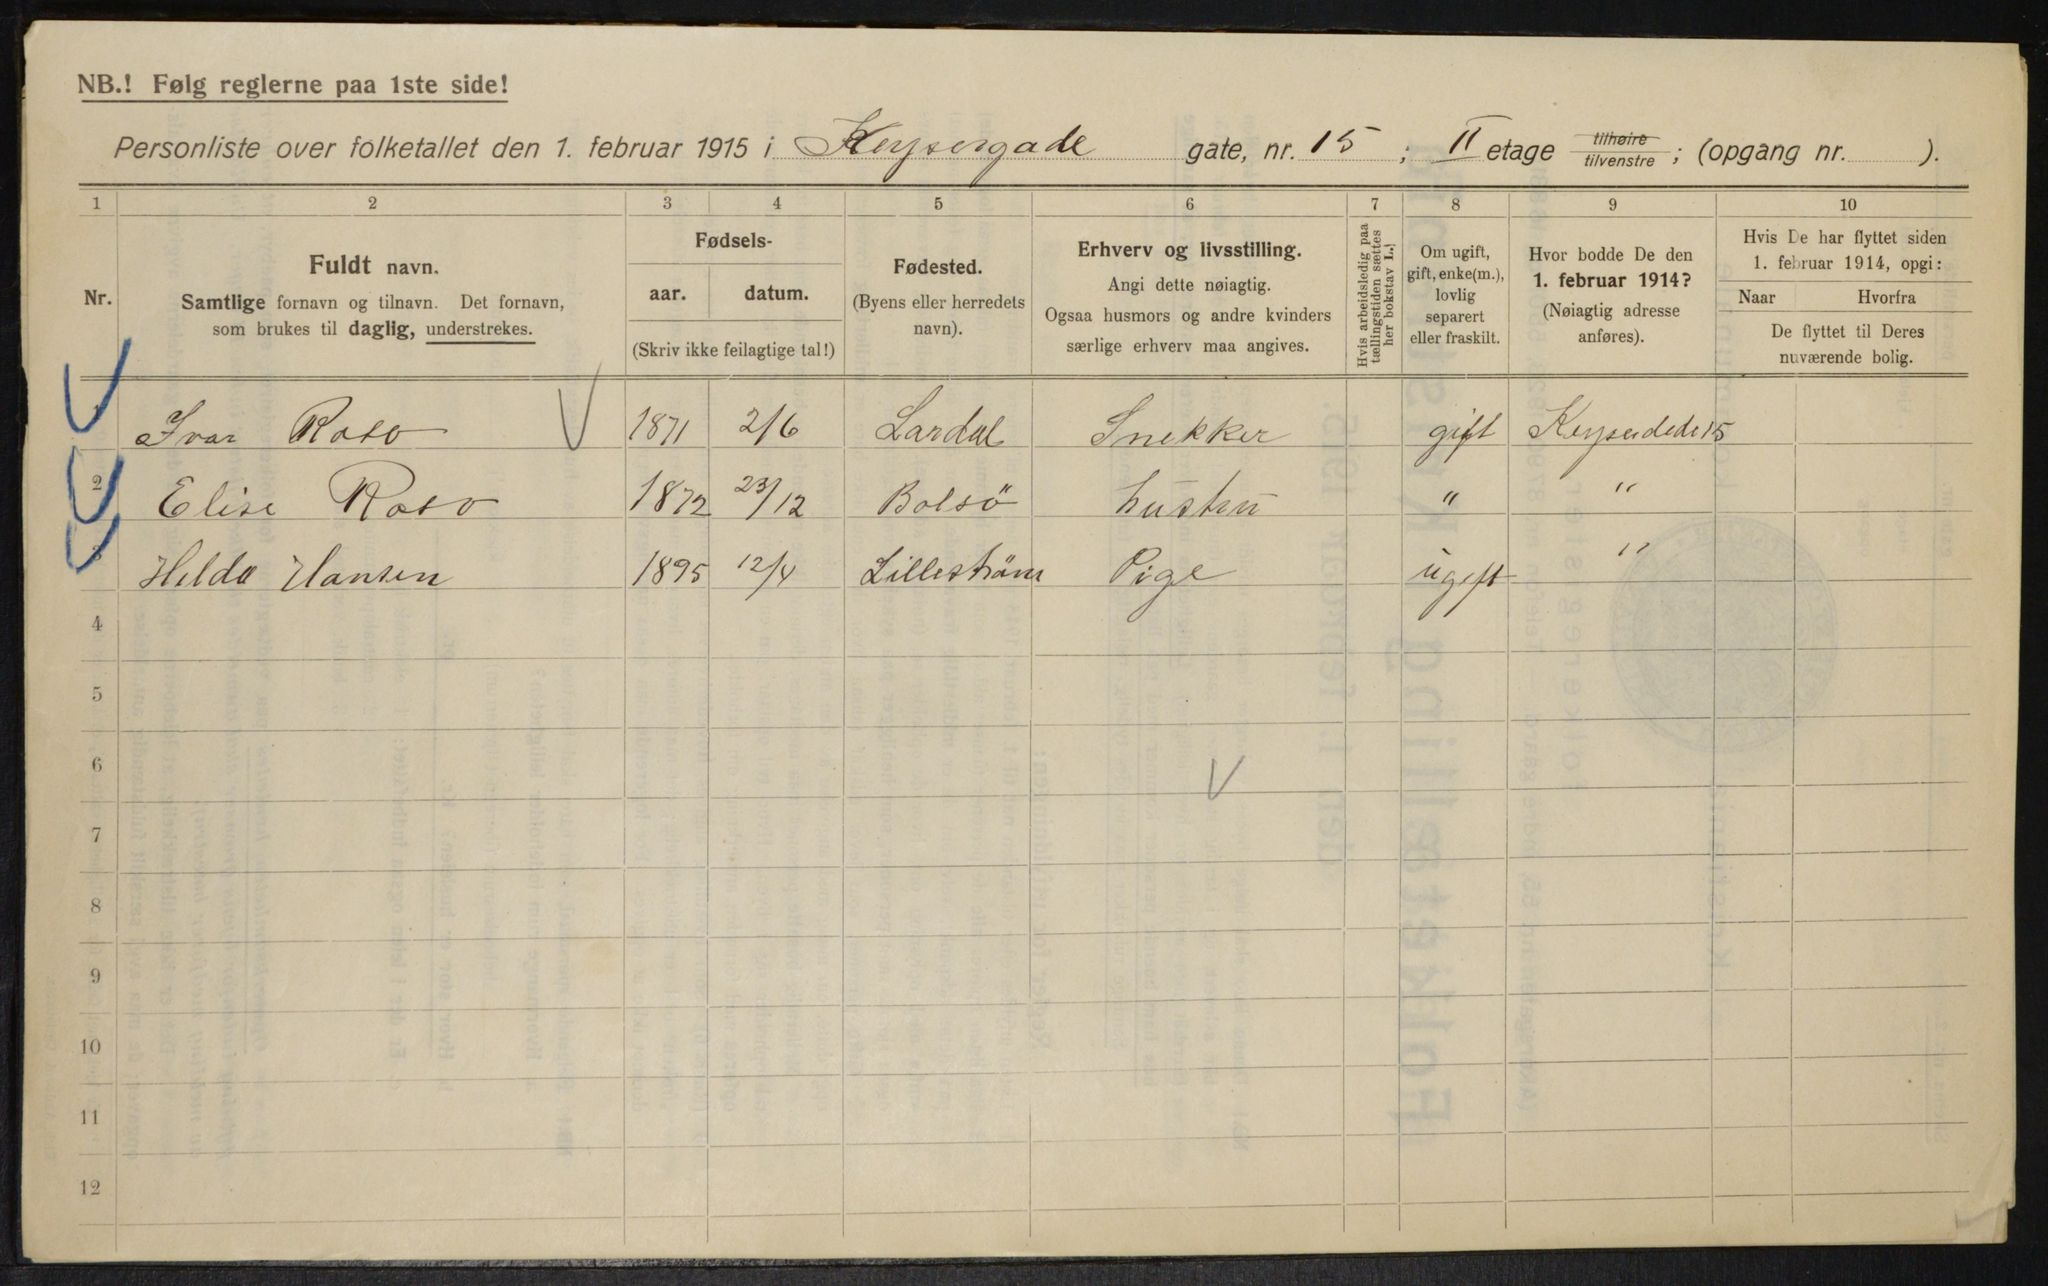 NB.! Følg reglerne paa 1ste side!
Personliste over folketallet den 1. februar 1915 i Keysergade gate, nr. 15 ; II etage tilhøire tilvenstre ; (opgang nr. ).
1 2 3 4 5 6 7 8 9 10
Nr.
Fuldt navn.
Samtlige fornavn og tilnavn. Det fornavn,
som brukes til daglig, understrekes.
Fødsels-
aar. datum.
(Skriv ikke feilagtige tal!)
Fødested.
(Byens eller herredets
navn).
Erhverv og livsstilling.
Angi dette nøiagtig.
Ogsaa husmors og andre kvinders
særlige erhverv maa angives.
Hvis arbeidsledig paa
tællingstiden sættes
her bokstav L.!
Om ugift,
gift, enke(m.),
lovlig
separert
eller fraskilt.
Hvor bodde De den
1. februar 1914?
(Nøiagtig adresse
anføres).
Hvis De har flyttet siden
1. februar 1914, opgi:
Naar Hvorfra
De flyttet til Deres
nuværende bolig.
1 Ivar Roso 1871 2/6 Lardal Snekker gift 15
2 Elise Roso 1872 23/12 Bolsö hustru " "
3 Helda Hansen 1895 12/4 Lilleström Pige ugift "
4
5
6
7
8
9
10
11
12